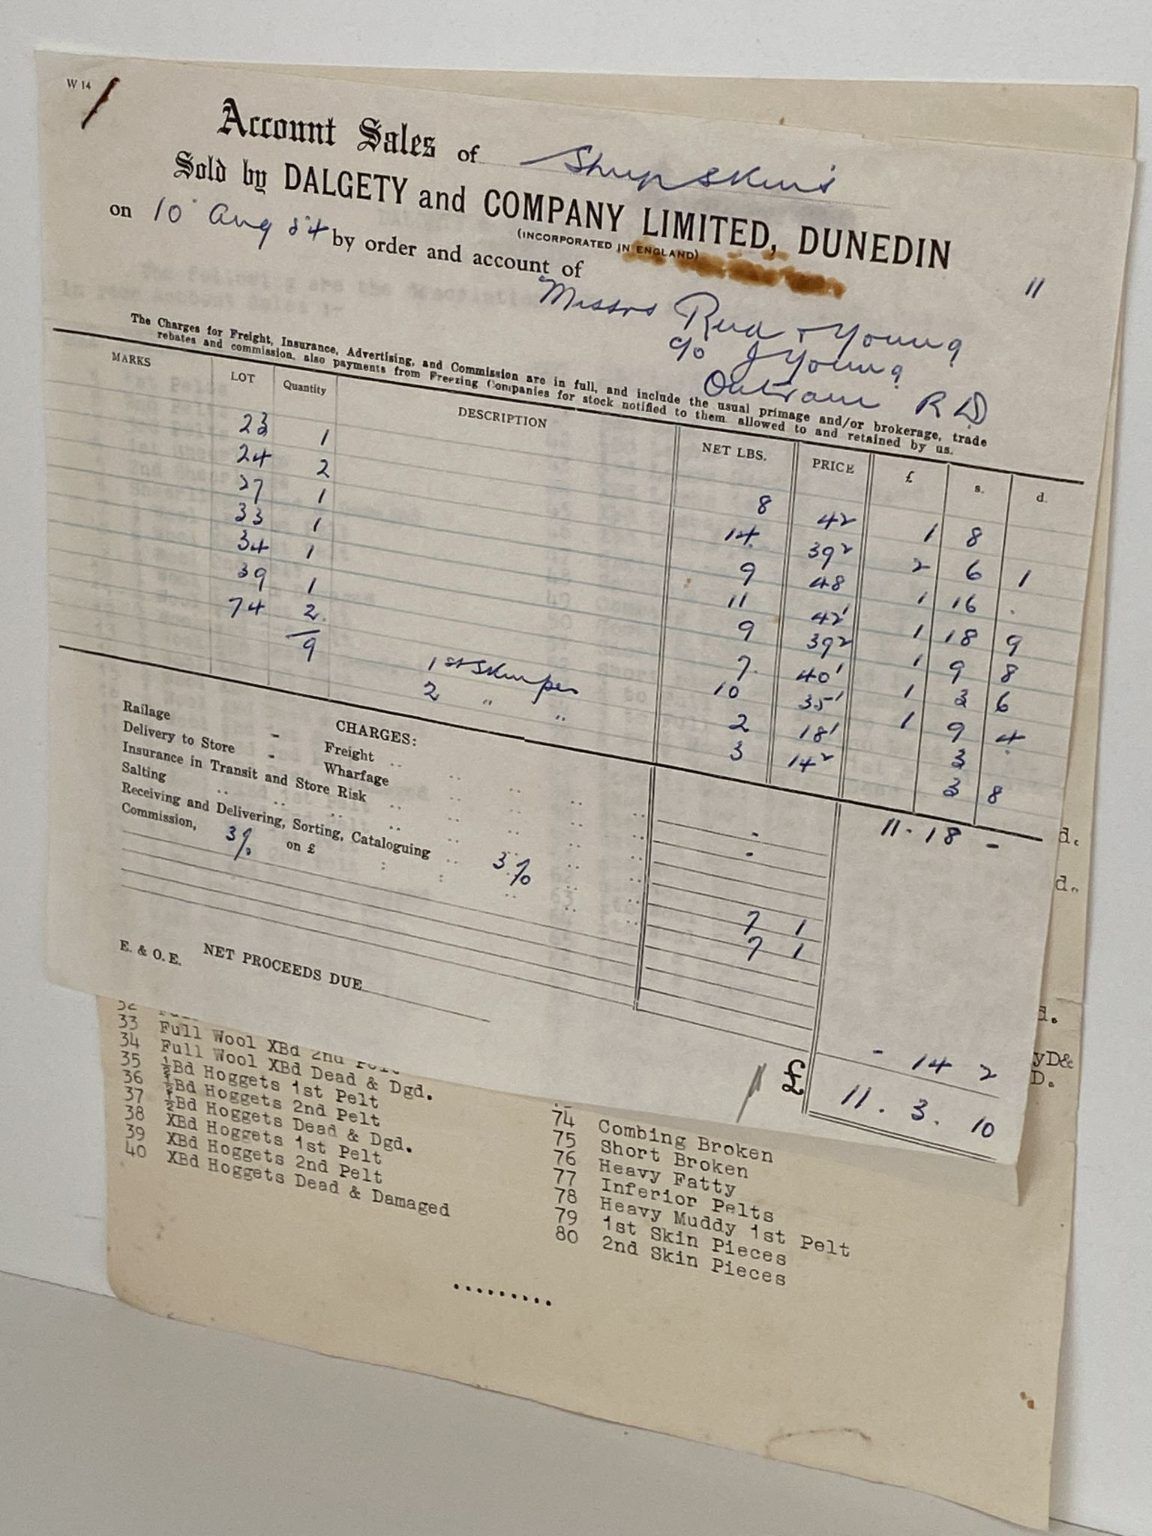 W 14
Account Sales of Sheepskins
Sold by DALGETY and COMPANY LIMITED, DUNEDIN
(INCORPORATED IN ENGLAND)
on 10 Aug 54 by order and account of
11
Messrs Reid & Young
c/o J Young
Outram R D
The Charges for Freight, Insurance, Advertising, and Commission are in full, and include the usual primage and/or brokerage, trade
rebates and commission, also payments from Freezing Companies for stock notified to them allowed to and retained by us.
MARKS LOT Quantity DESCRIPTION NET LBS. PRICE £ s. d.
23 1 8 42 1 8
24 2 14 39² 2 6 1
27 1 9 48 1 16 .
33 1 11 42¹ 1 18 9
34 1 9 39² 1 9 8
39 1 7 40¹ 1 3 6
74 2 10 35¹ 1 9 4
9 1 st 2 18¹ 3
2 " " 3 14² 3 8
11 - 18 -
CHARGES:
Railage - Freight
Delivery to Store - Wharfage
Insurance in Transit and Store Risk
Salting
Receiving and Delivering, Sorting, Cataloguing 3% 7 1
Commission, 3% on £ 7 1
- 14 2
E. & O. E. NET PROCEEDS DUE
£ 11 . 3 . 10
d.
d.
d.
yD&
D.
32
33 Full Wool XBd 2nd Pelt
34 Full Wool XBd Dead & Dgd.
35 ½Bd Hoggets 1st Pelt
36 ½Bd Hoggets 2nd Pelt
37 ½Bd Hoggets Dead & Dgd.
38 XBd Hoggets 1st Pelt
39 XBd Hoggets 2nd Pelt
40 XBd Hoggets Dead & Damaged
74 Combing Broken
75 Short Broken
76 Heavy Fatty
77 Inferior Pelts
78 Heavy Muddy 1st Pelt
79 1st Skin Pieces
80 2nd Skin Pieces
.........